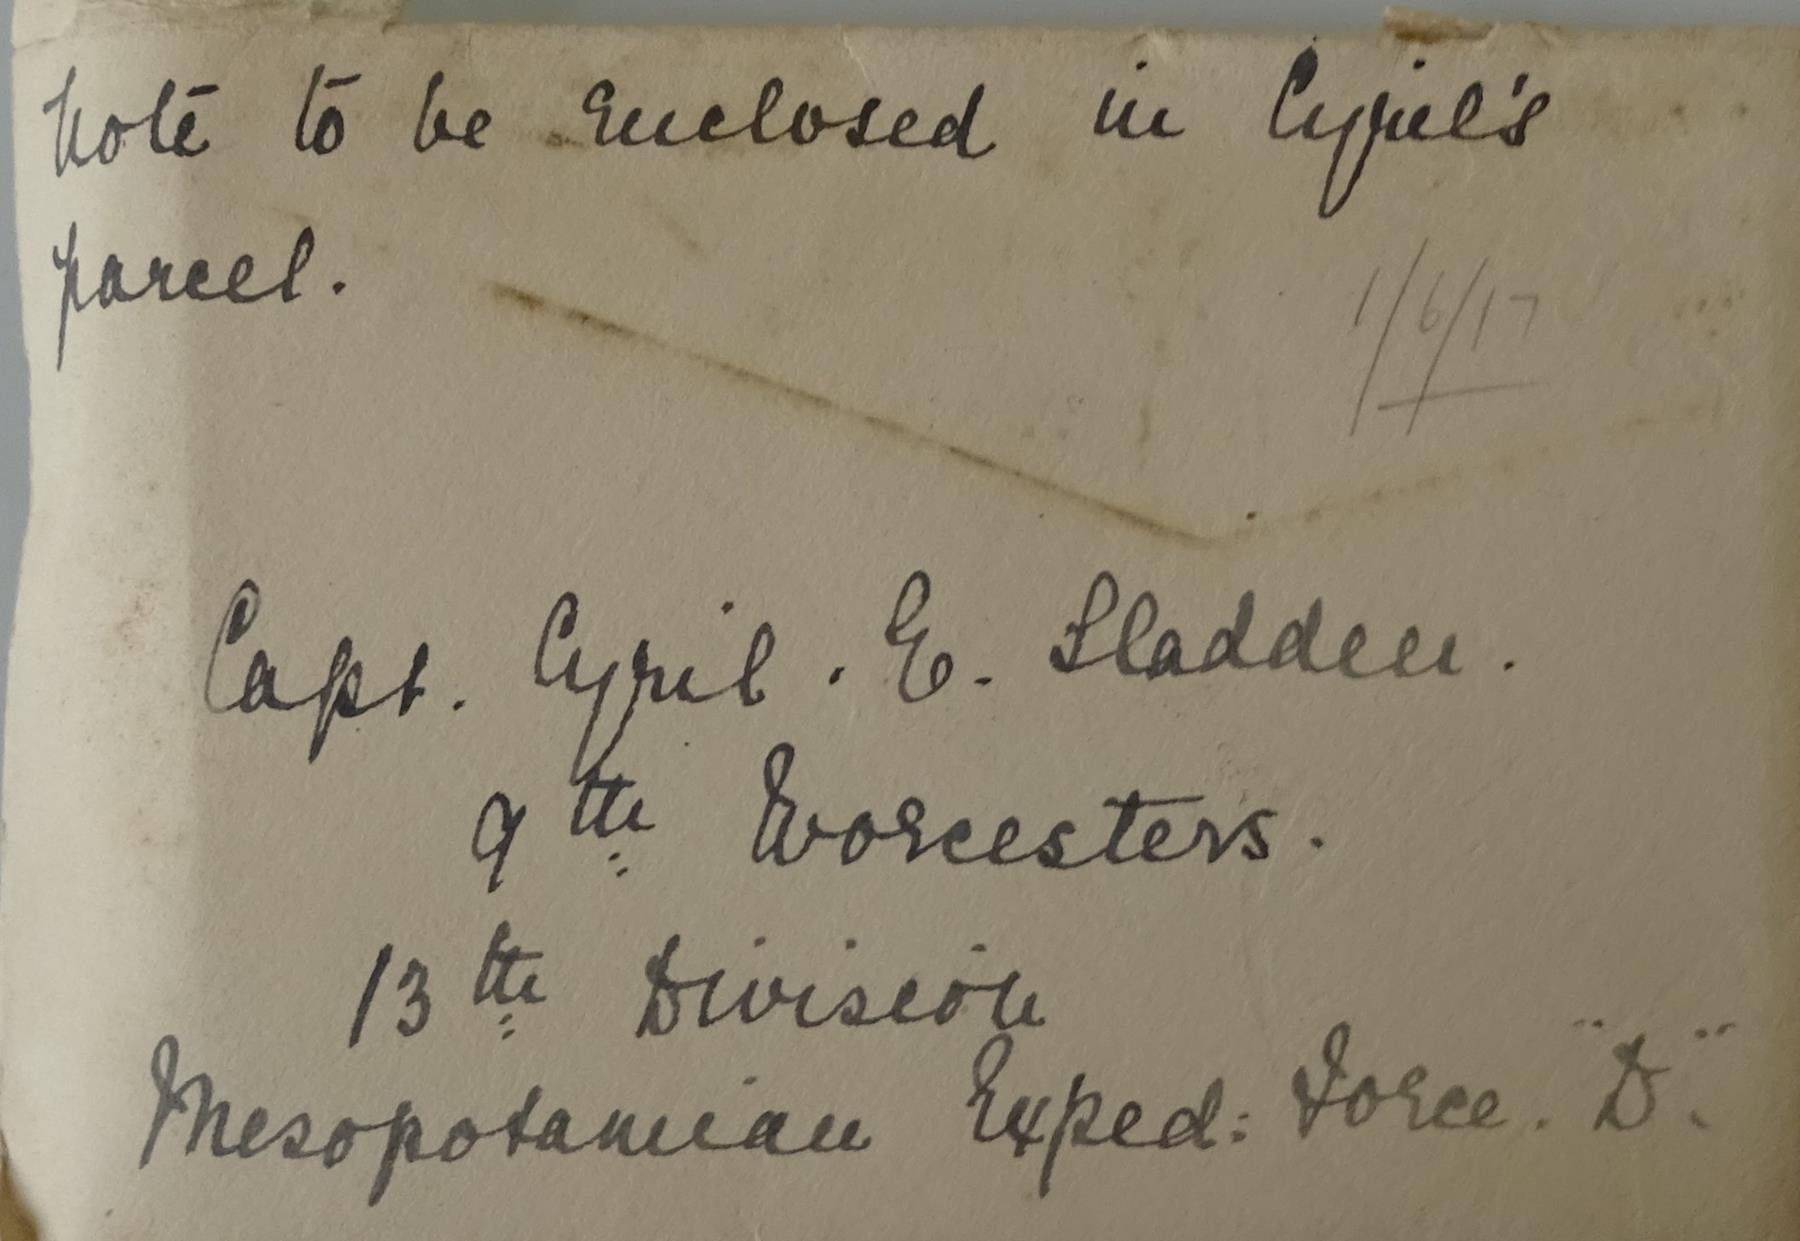 Note to be enclosed in Cyril's
parcel.
1/6/17
Capt. Cyril. E. Sladden.
9th Worcesters.
13th Division
Mesopotamian Exped: Force. "D".